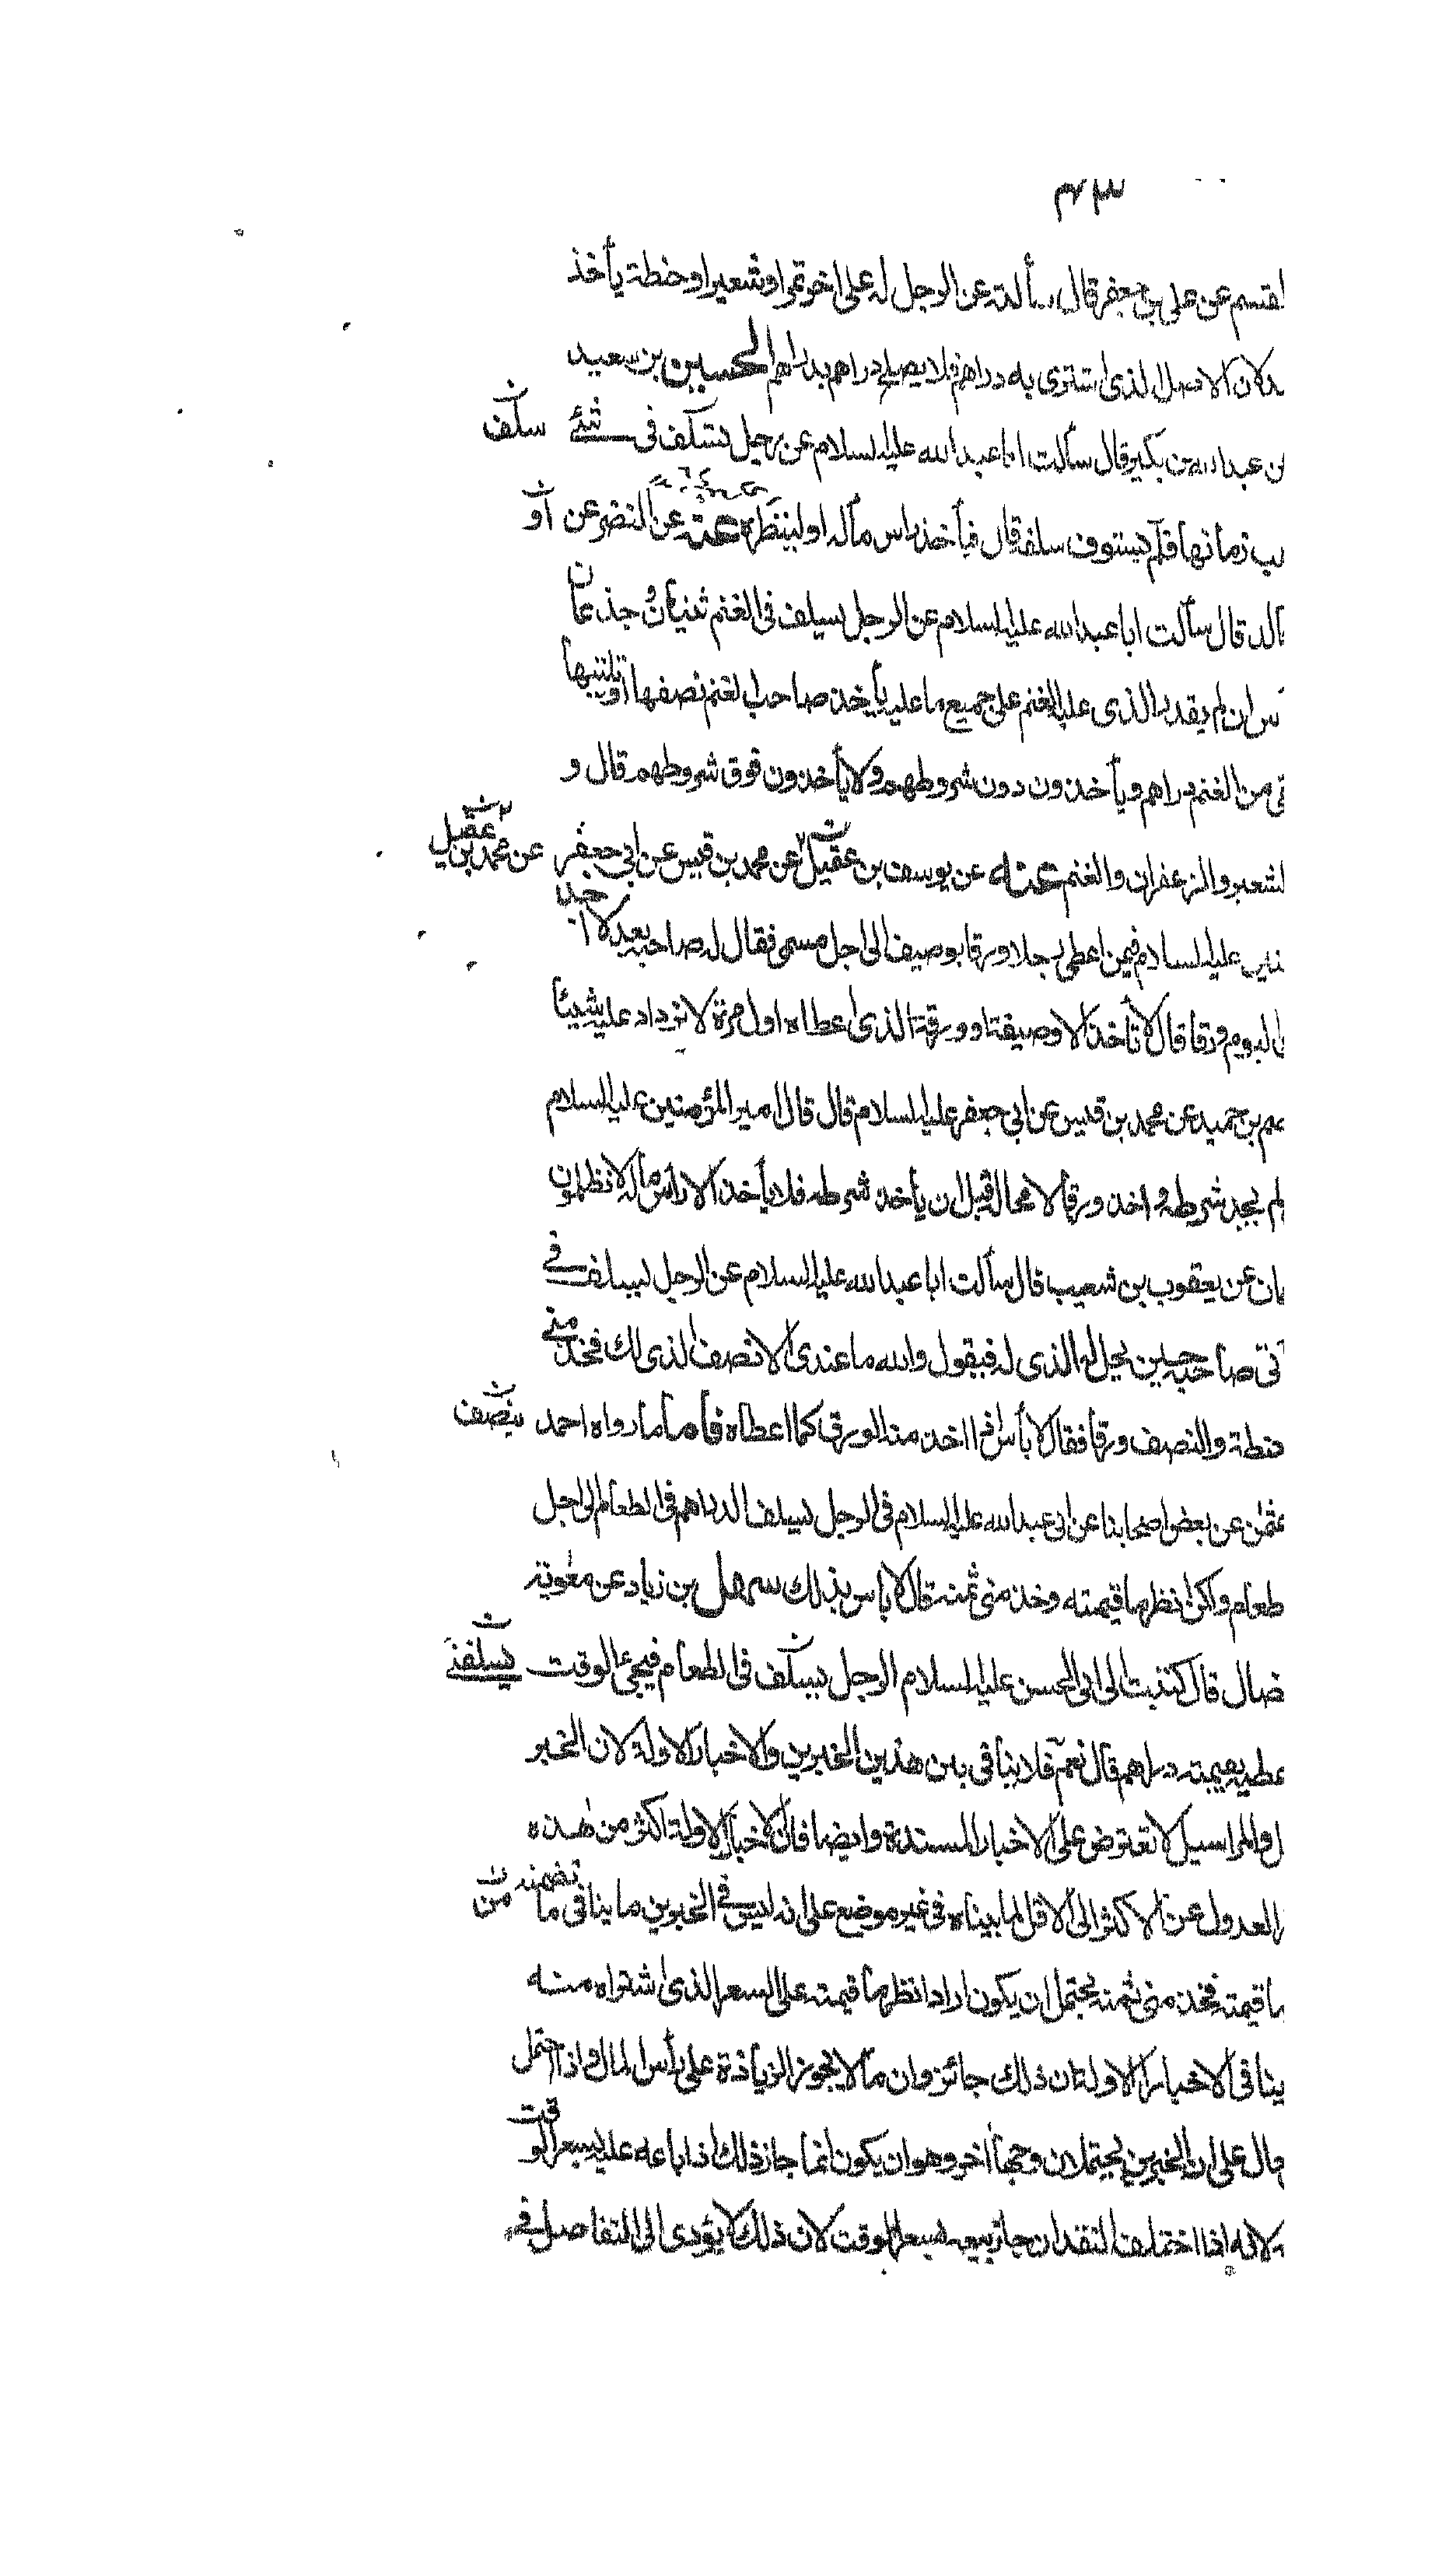 لقسم عن علي بن جعفر قال سألته عن الرجل له على اخر تمرا او شعيرا او حنطة يأخذ
لان الاصل الذى اشترى به دراهم فلا يصلح دراهم بدراهم الحسين بن سعيد
بن عبد الله بن بكير قال سألت ابا عبد الله عليه السلام عن رجل يسلف في شئ سلف
زمانها فلم يستوف سلفه قال فيأخذ راس ماله او لينظره عنه عن النضر عن او
قال سألت ابا عبد الله عليه السلام عن الرجل يسلف في الغنم ثنيان وجذعان
ان لم يقدر الذى عليه الغنم على جميع ما عليه يأخذ صاحب الغنم نصفها او ثلثيها
من الغنم دراهم ويأخذون دون شروطهم ولا يأخذون فوق شروطهم قال و
لشعير والزعفران والغنم عنه عن يوسف بن عقيل عن محمد بن قيس عن ابي جعفر عن محمد بن عقيل
عليه السلام فيمن اعطى رجلا ورقا بوصيف الى اجل مسمى فقال له صاحبه بعد لا اجد
اليوم ورقا قال لا تأخذ الا وصيفته او ورقه الذى اعطاه اول مرة لا تزداد عليه شيئا
بن حميد عن محمد بن قيس عن ابي جعفر عليه السلام قال قال امير المؤمنين عليه السلام
لم يجد شرطه واخذ ورقا لا محالة قبل ان يأخذ شرطه فلا يأخذ الا رأس ماله لا تظلمون
عن يعقوب بن شعيب قال سألت ابا عبد الله عليه السلام عن الرجل يسلف في
صاحبه حين يحل له الذى له فيقول والله ما عندى الا نصف الذى لك فخذ مني
حنطة والنصف ورقا فقال لا بأس اذا اخذ منه الورق كما اعطاه فاما ما رواه احمد بنصف
عثمن عن بعض اصحابنا عن ابي عبد الله عليه السلام في الرجل يسلف الدراهم في الطعام الى اجل
طعام ولكن انظر ما قيمته وخذ منى ثمنه قال لا باس بذلك سهل بن زياد عن معوية
قال كتبت الى ابى الحسن عليه السلام الرجل يسلف في الطعام فيجئ الوقت يسلفني
بقيمته دراهم قال نعم فلا ينافى بين هذين الخبرين والاخبار الاولة لان الخبر
والمراسيل لا تعترض على الاخبار المسندة وايضا فان الاخبار الاولة اكثر من هذه
العدول عن الاكثر الى الاقل لما بيناه في غير موضع على انه ليس في الخبرين ما ينافى ما تضمنه من
ما قيمته فخذ منى ثمنه يحتمل ان يكون اراد انظر ما قيمته على السعر الذى اشتراه منه
ينافى الاخبار الاولة لان ذلك جائز وان ما لا يجوز الزيادة على رأس المال واذا احتمل
على ان الخبرين يحتملان وجها اخر وهو ان يكون انما جاز ذلك اذا باعه عليه بسعر الوقت
لانه اذا اختلف النقدان جاز بيعه بسعر الوقت لان ذلك لا يؤدى الى التفاضل في